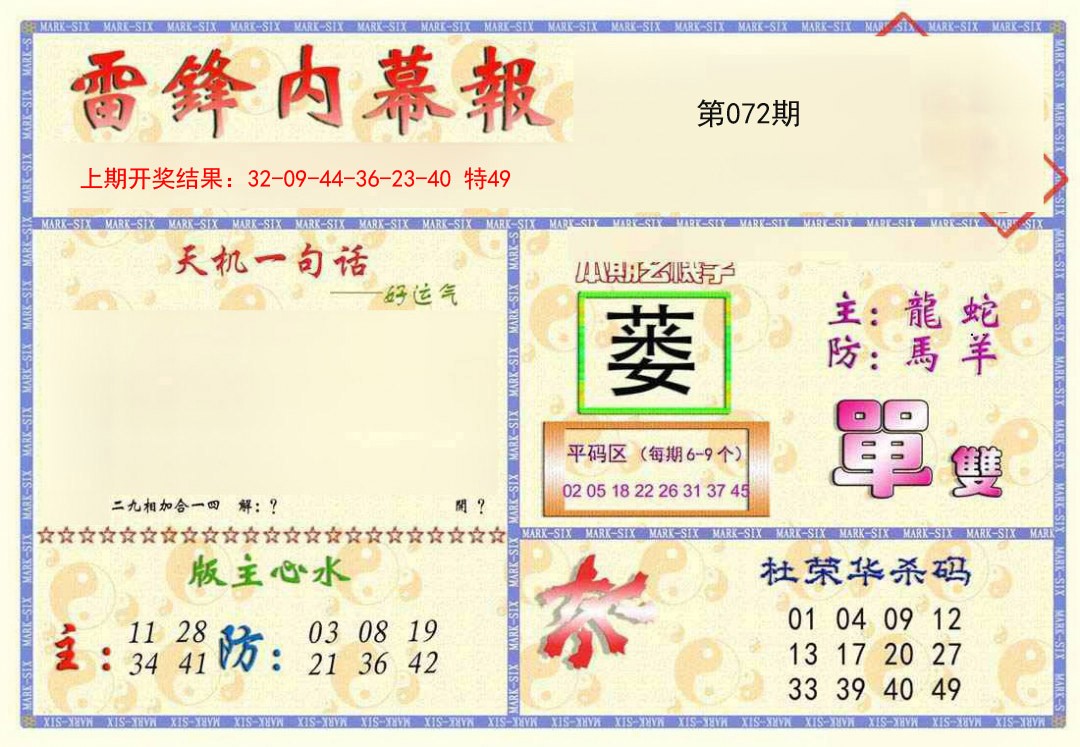 雷鋒内幕報
第072期
上期开奖结果：32-09-44-36-23-40 特49
天机一句话
——好运气
二九相加合一四 解：？ 開？
版主心水
主： 11 28 34 41
防： 03 08 19 21 36 42
蒌
平码区（每期6-9个）
02 05 18 22 26 31 37 45
主：龍 蛇
防：馬 羊
單 雙
杀
杜荣华杀码
01 04 09 12
13 17 20 27
33 39 40 49
MARK-SIX